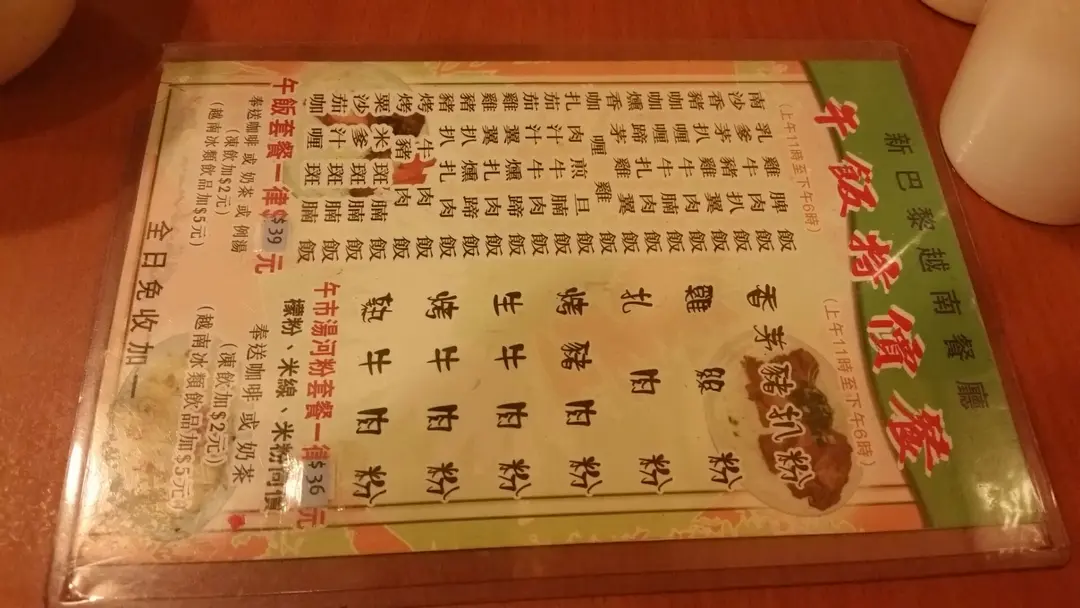 新巴黎越南餐廳
午飯特價餐
(上午11時至下午6時)
南乳雞脾飯
沙爹牛肉飯
香茅豬扒飯
豬扒雞翼飯
咖喱牛腩飯
燻蹄扎肉飯
香茅雞翼飯
咖喱雞飯
扎肉煎旦飯
茄汁牛腩飯
茄汁牛肉飯
雞翼燻蹄飯
雞翼扎肉飯
豬扒燻蹄飯
豬扒扎肉飯
烤牛肉飯
烤豬肉飯
粟米斑腩飯
沙爹斑腩飯
茄汁斑腩飯
咖喱斑腩飯
午飯套餐一律$39元
奉送咖啡或奶茶或例湯
(凍飲加$2元)
(越南冰類飲品加$5元)
(上午11時至下午6時)
香茅豬扒粉
雞翼粉
扎肉粉
烤豬肉粉
生牛肉粉
烤牛肉粉
熟牛肉粉
午市湯河粉套餐一律$36元
檬粉、米線、米粉同價
奉送咖啡或奶茶
(凍飲加$2元)
(越南冰類飲品加$5元)
全日免收加一